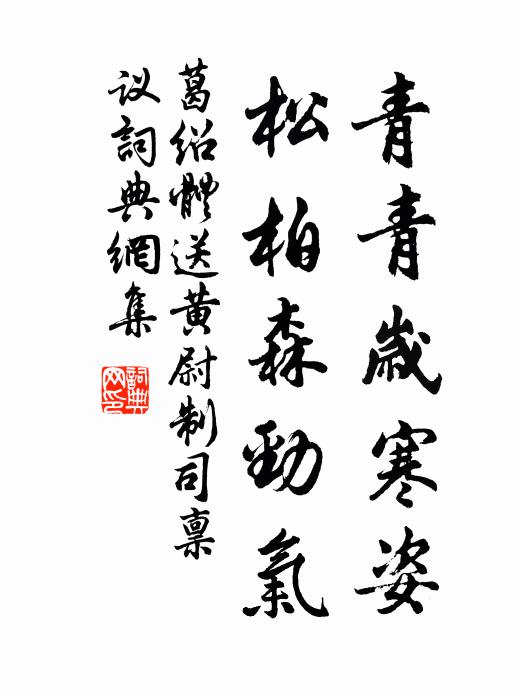 青青歲寒姿
松柏森勁氣
葛绍體送黄尉制司禀
议詞典網集
詞典
网印